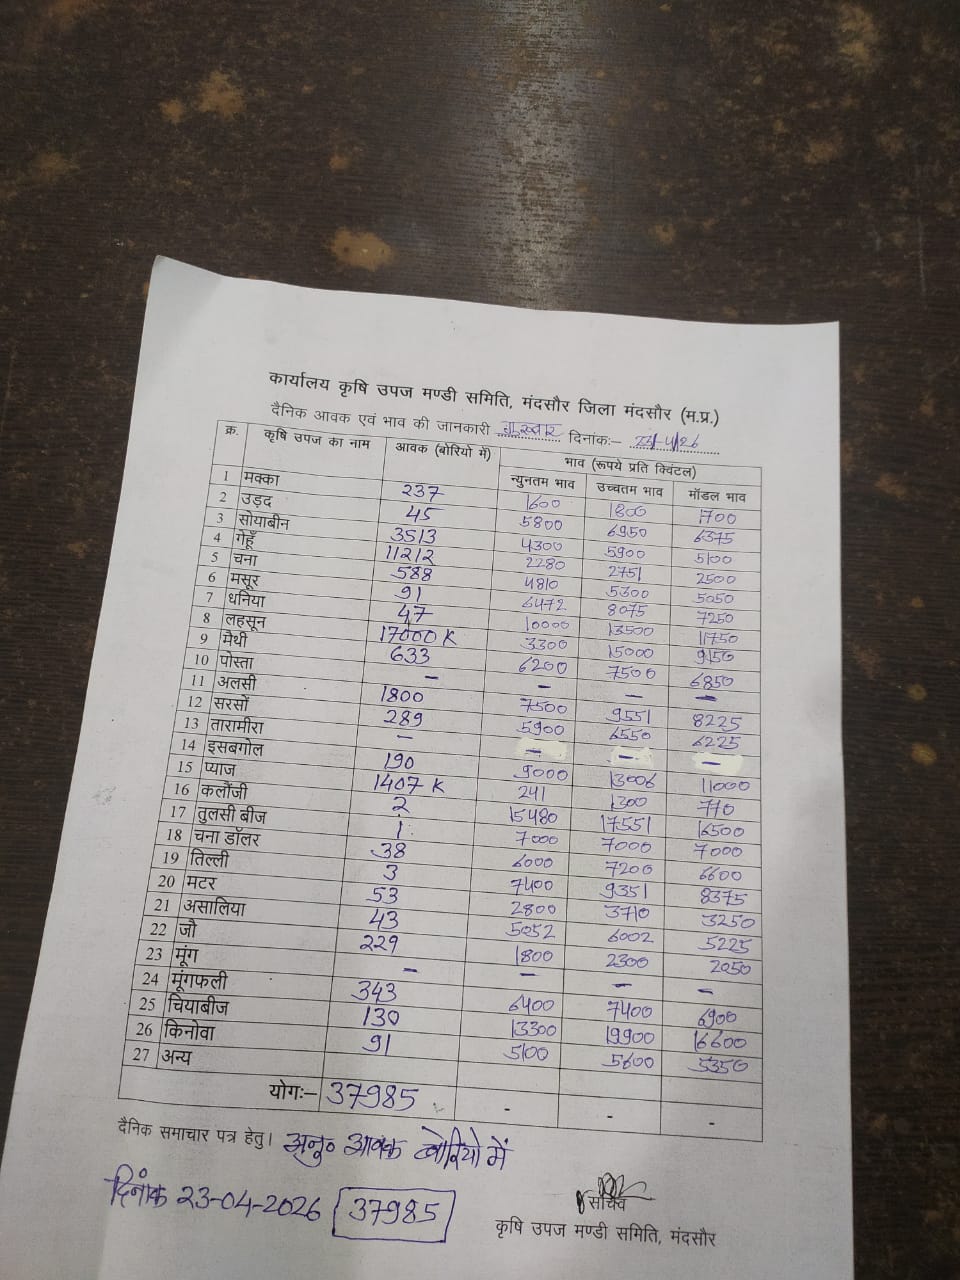 कार्यालय कृषि उपज मण्डी समिति, मंदसौर जिला मंदसौर (म.प्र.)
दैनिक आवक एवं भाव की जानकारी गुरूवार दिनांक:– 23/4/26
क्र. कृषि उपज का नाम आवक (बोरियो में) भाव (रूपये प्रति क्विंटल)
न्युनतम भाव उच्चतम भाव मॉडल भाव
1 मक्का 237 1600 1800 1700
2 उड़द 45 5800 6950 6375
3 सोयाबीन 3513 4300 5900 5100
4 गेहूँ 11212 2280 2751 2500
5 चना 588 4810 5300 5050
6 मसूर 91 6472 8075 7250
7 धनिया 47 10000 13500 11750
8 लहसून 17000 K 3300 15000 9150
9 मेथी 633 6200 7500 6850
10 पोस्ता – – – –
11 अलसी 1800 7500 9551 8225
12 सरसों 289 5900 6550 6225
13 तारामीरा – – – –
14 इसबगोल 190 9000 13006 11000
15 प्याज 1407 K 241 1300 770
16 कलौंजी 2 15480 17551 16500
17 तुलसी बीज 1 7000 7000 7000
18 चना डॉलर 38 6000 7200 6600
19 तिल्ली 3 7400 9351 8375
20 मटर 53 2800 3710 3250
21 असालिया 43 5052 6002 5225
22 जौ 229 1800 2300 2050
23 मूंग – – – –
24 मूंगफली 343 6400 7400 6900
25 चियाबीज 130 13300 19900 16600
26 किनोवा 91 5100 5600 5350
27 अन्य
योगः– 37985 - - -
दैनिक समाचार पत्र हेतु। अनु० आवक बोरियो में
दिनांक 23-04-2026 37985
सचिव
कृषि उपज मण्डी समिति, मंदसौर